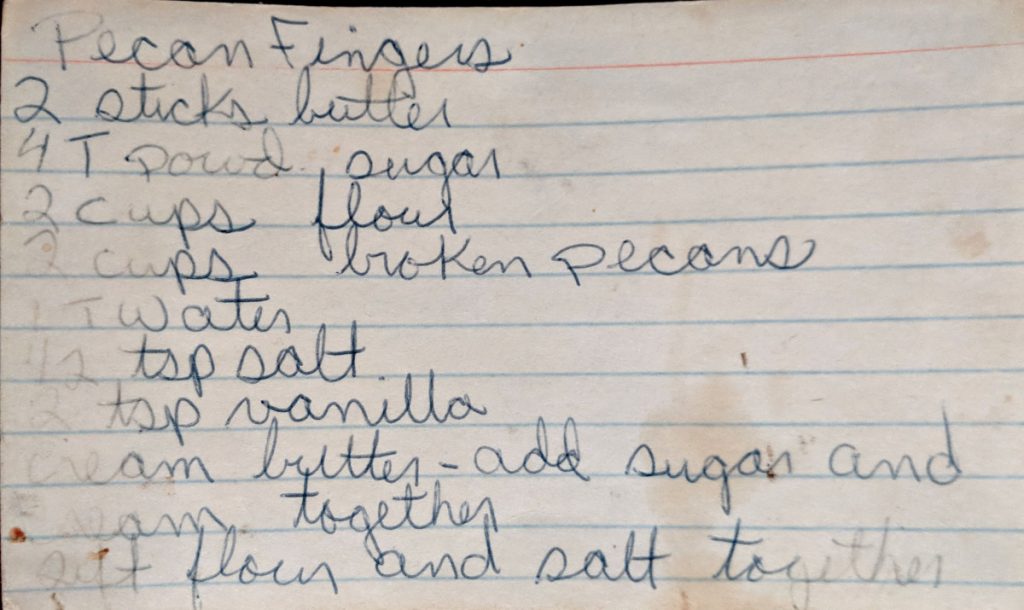 Pecan Fingers
2 sticks butter
4 T powd. sugar
2 cups flour
2 cups broken pecans
1 T water
1/2 tsp salt
2 tsp vanilla
cream butter - add sugar and
cream together
sift flour and salt together